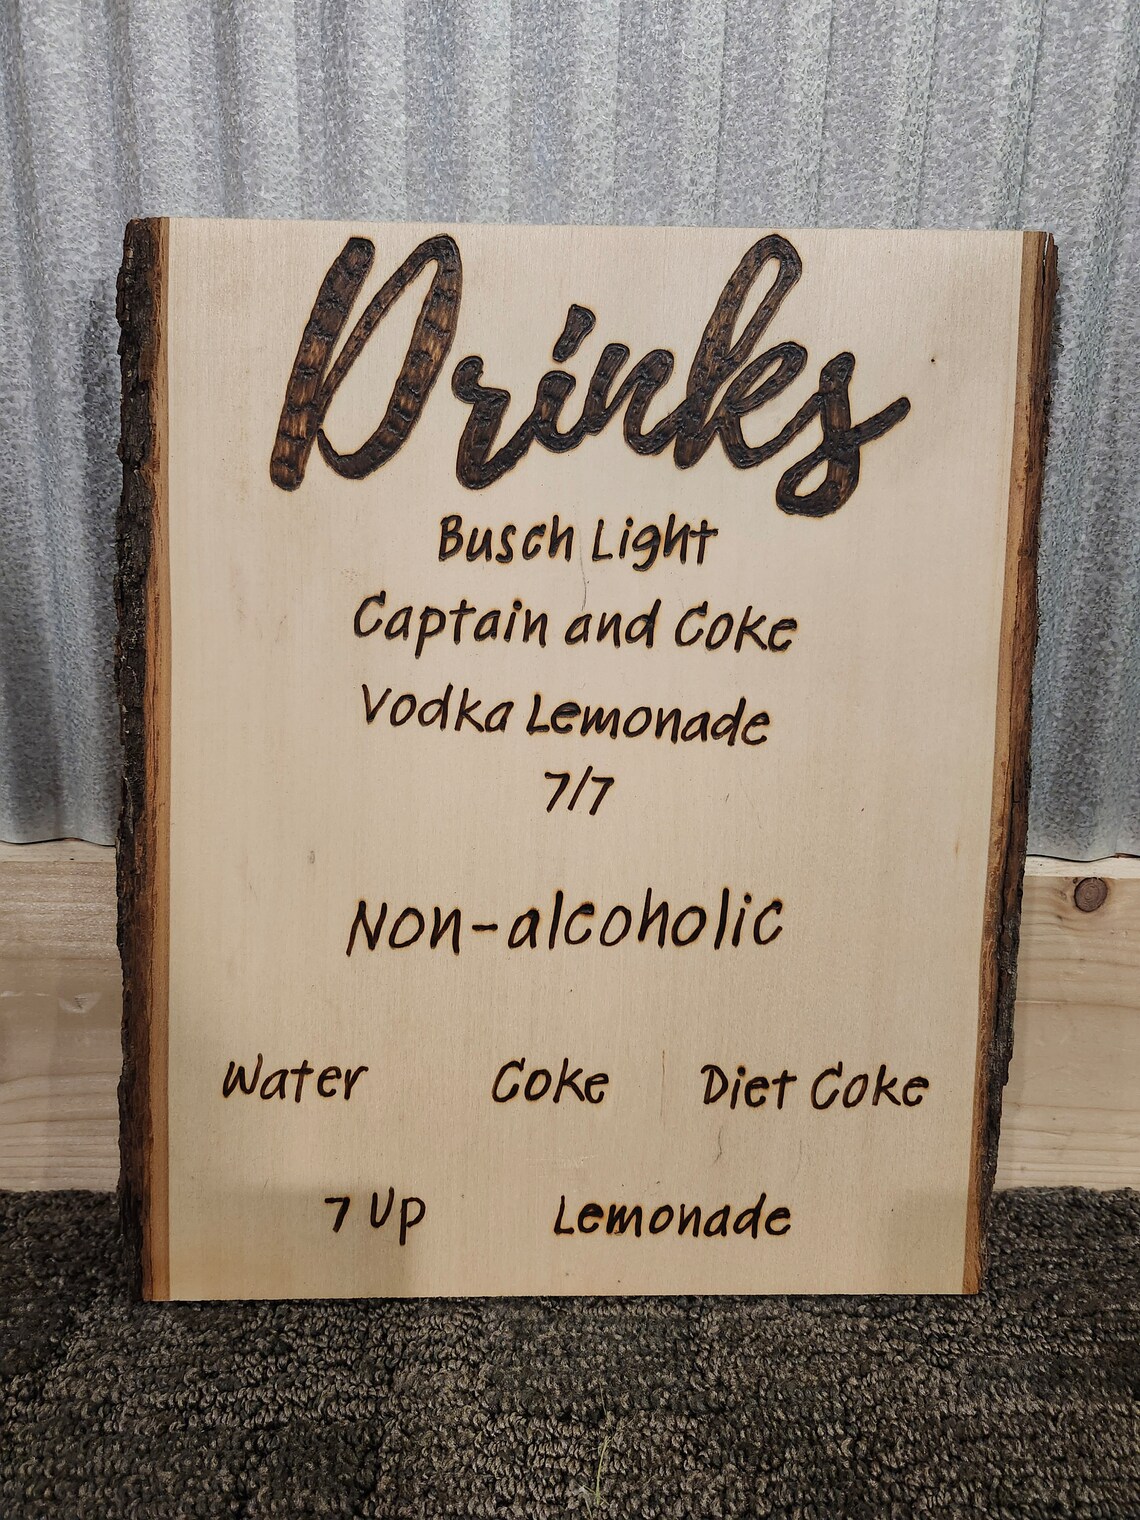 Drinks
Busch Light
Captain and Coke
Vodka Lemonade
7/7
Non-alcoholic
Water Coke Diet Coke
7 Up Lemonade